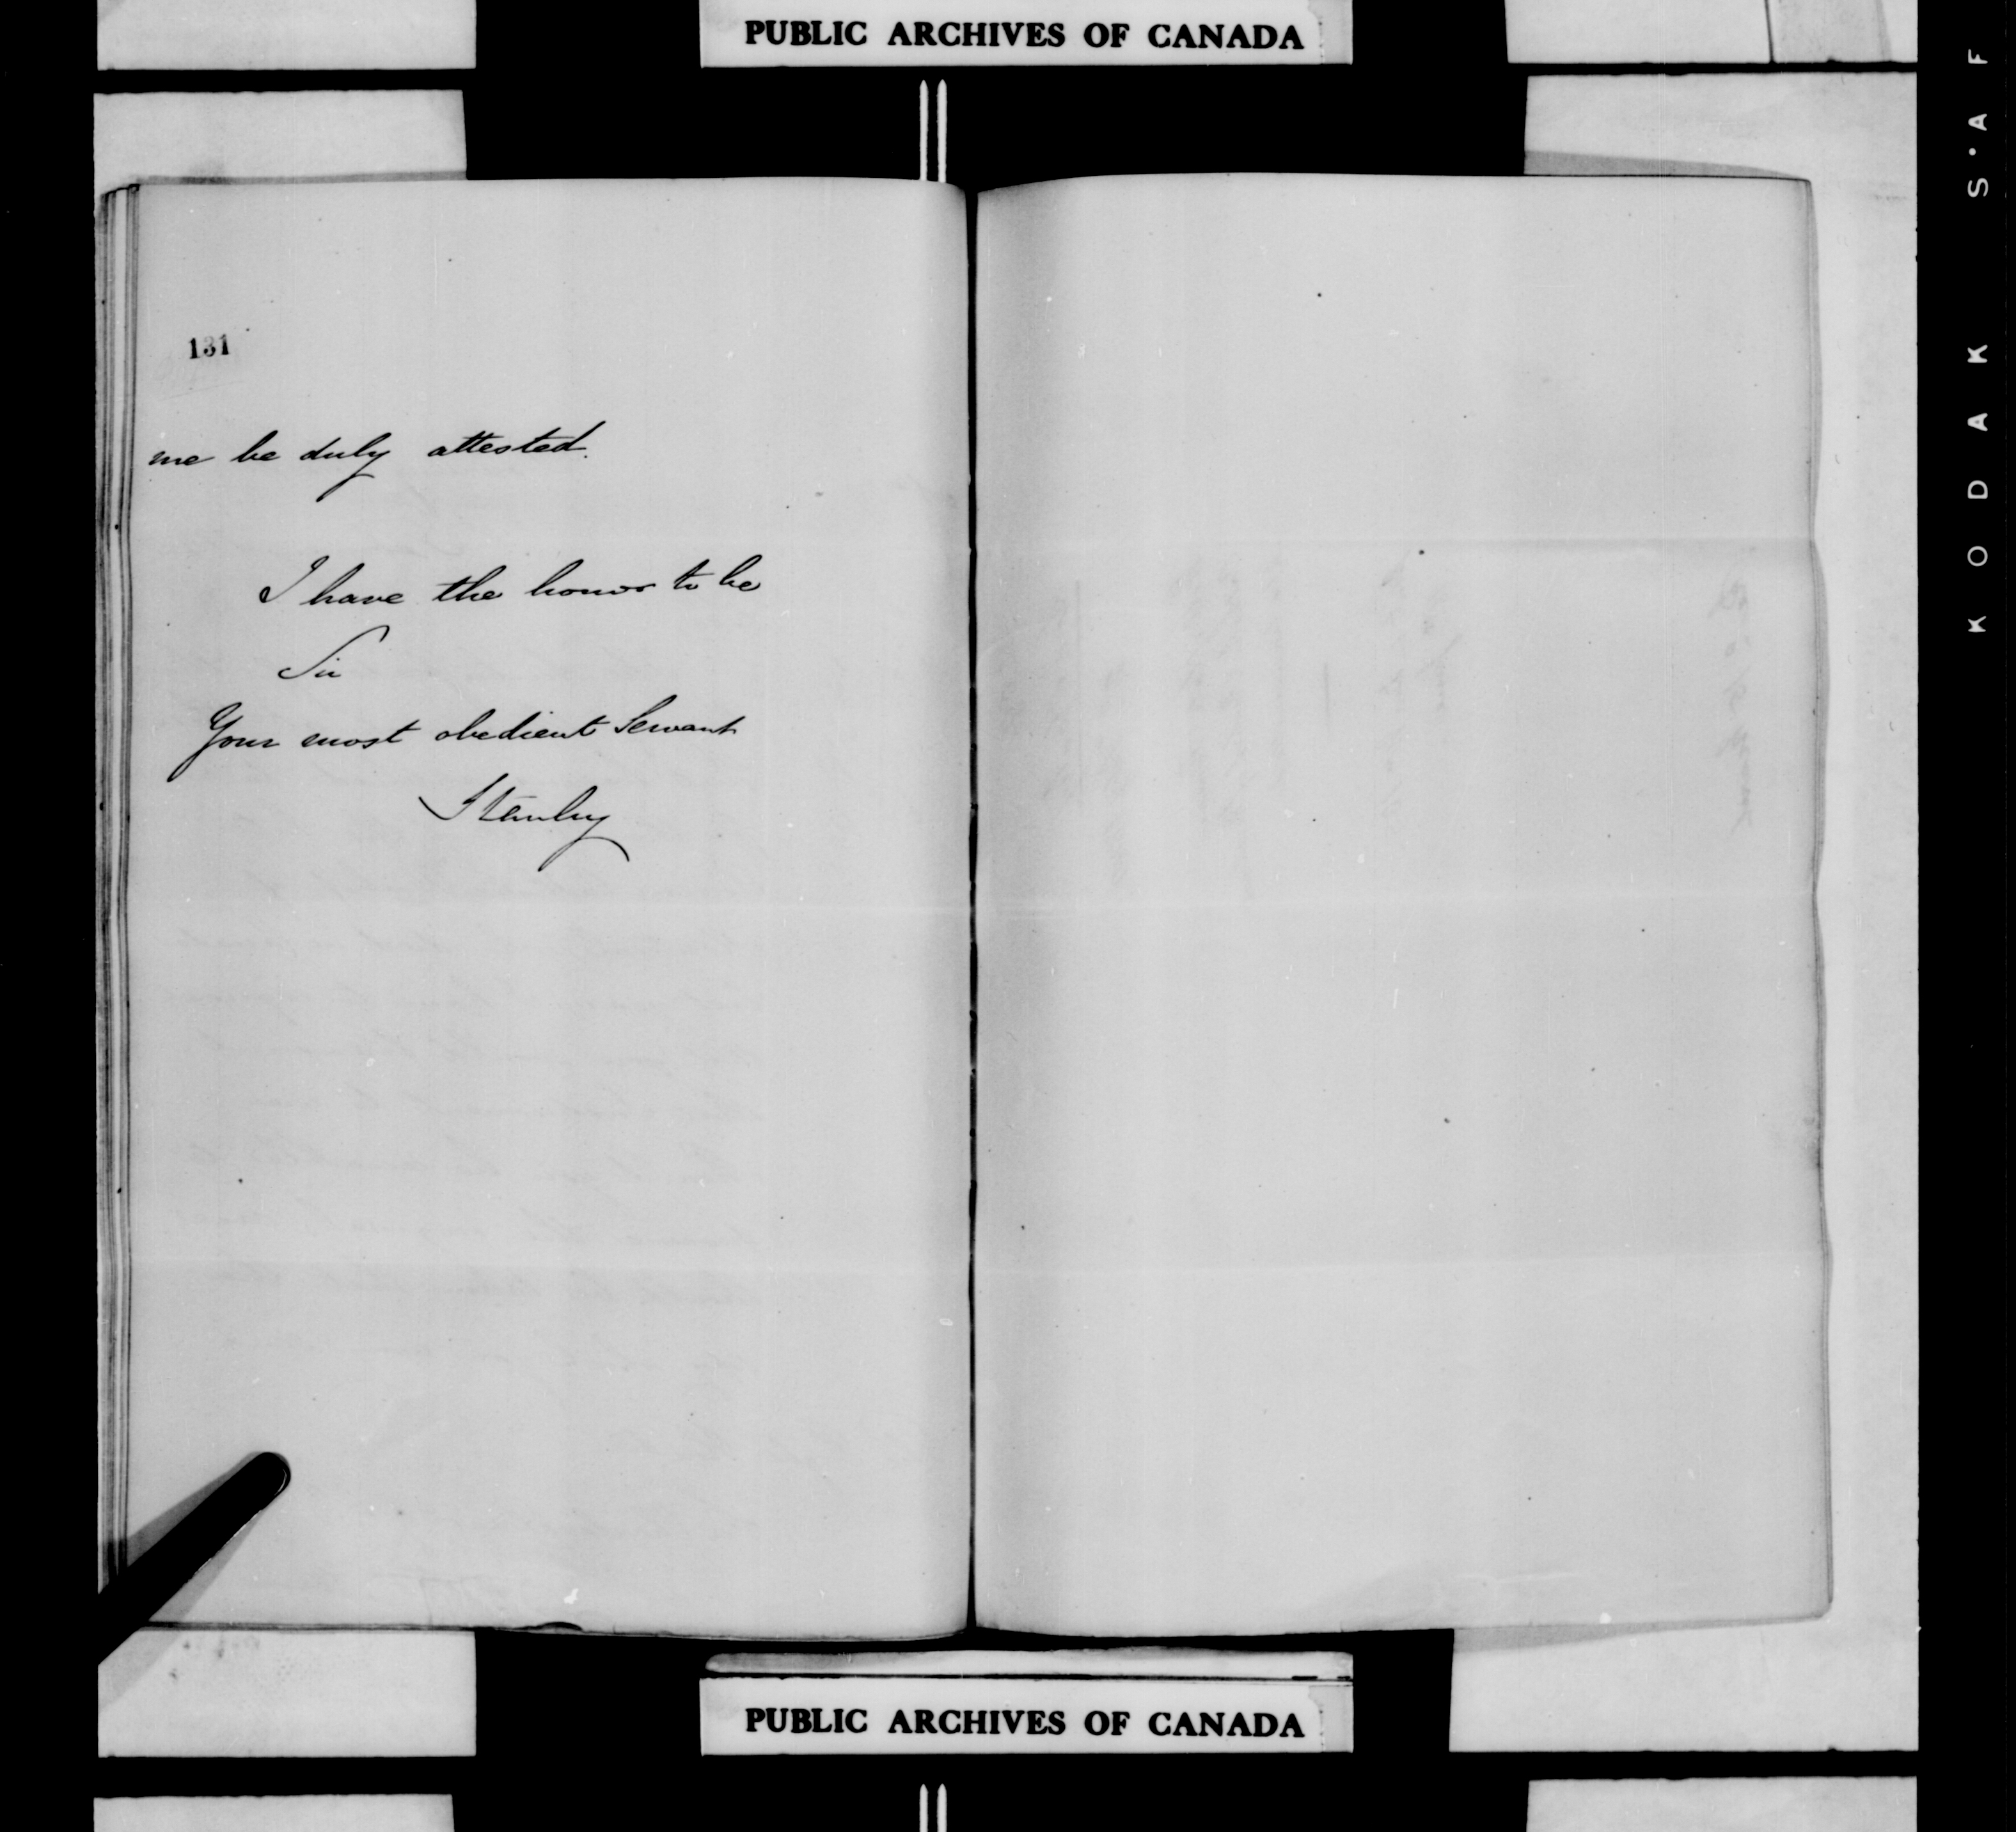 PUBLIC ARCHIVES OF CANADA
131
me be duly attested.
I have the honor to be
Sir
Your most obedient Servant
Stanley
PUBLIC ARCHIVES OF CANADA
KODAK S·AF